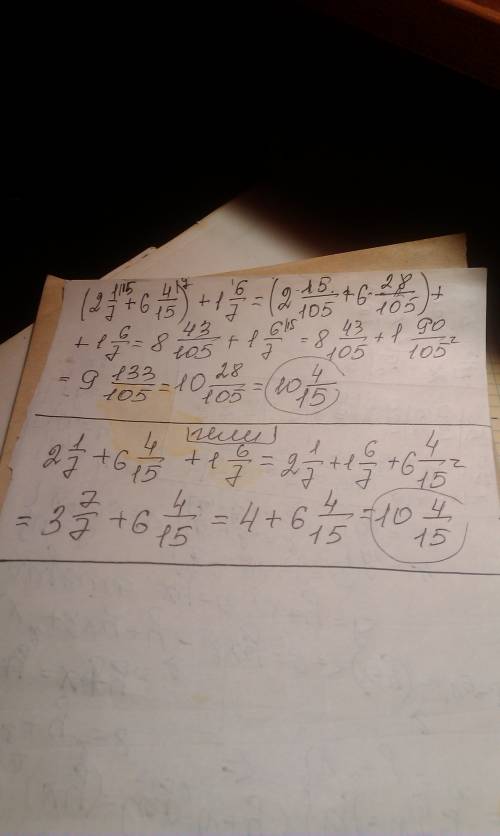 (2 1/7 ^15 + 6 4/15 ^7) + 1 6/7 = (2 15/105 + 6 28/105) +
+ 1 6/7 = 8 43/105 + 1 6/7 ^15 = 8 43/105 + 1 90/105 =
= 9 133/105 = 10 28/105 = 10 4/15
(или)
2 1/7 + 6 4/15 + 1 6/7 = 2 1/7 + 1 6/7 + 6 4/15 =
= 3 7/7 + 6 4/15 = 4 + 6 4/15 = 10 4/15